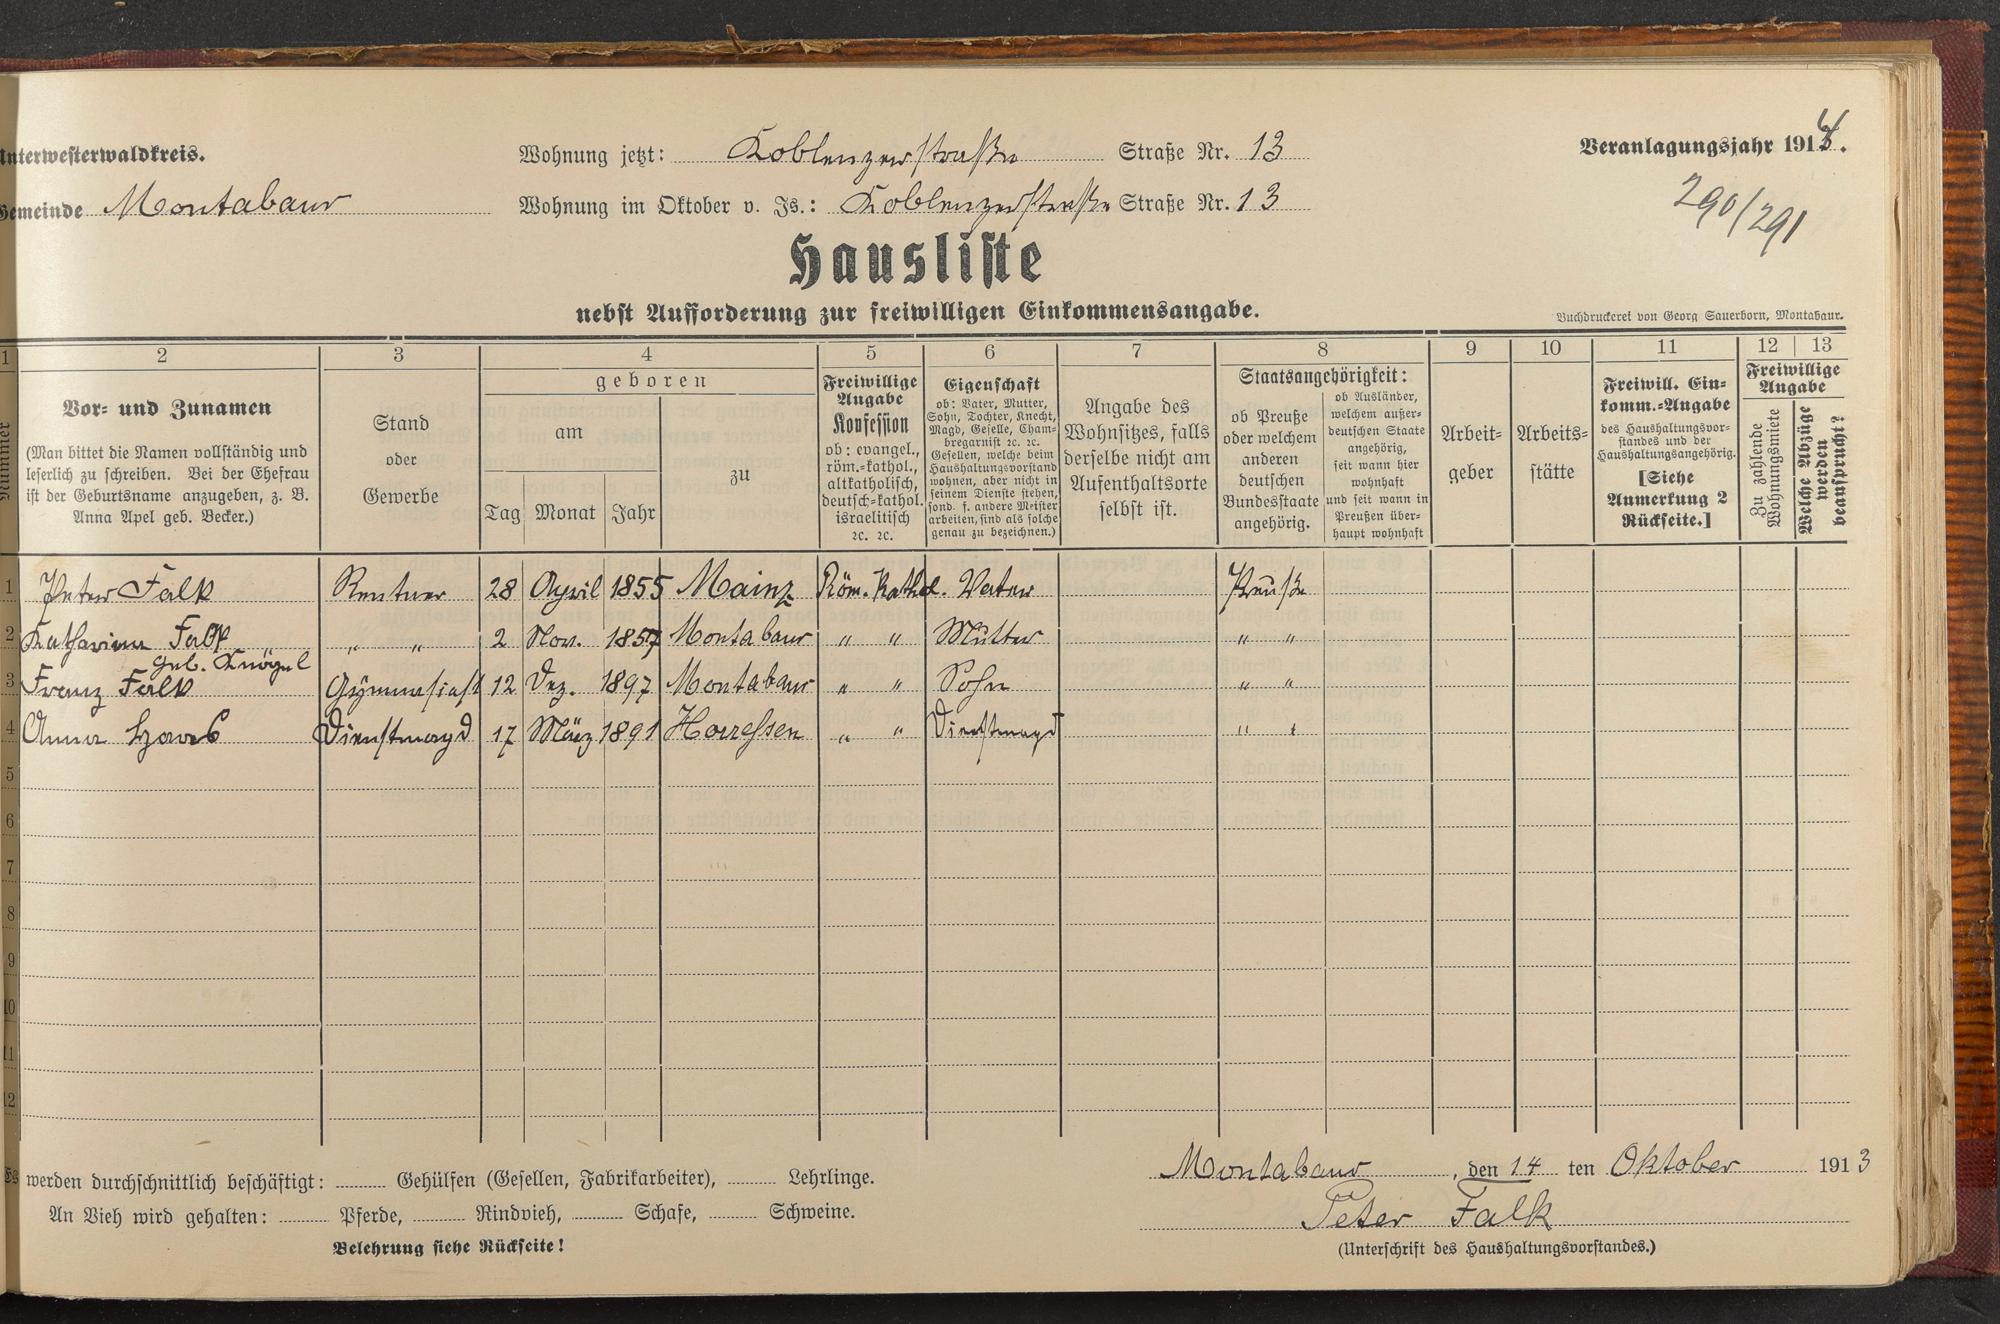 Unterwesterwaldkreis.
Wohnung jetzt: Koblenzerstraße Straße Nr. 13
Veranlagungsjahr 1914.
Gemeinde Montabaur
Wohnung im Oktober v. Js.: Koblenzerstraße Straße Nr. 13
290/291
Hausliste
nebst Aufforderung zur freiwilligen Einkommensangabe.
Buchdruckerei von Georg Sauerborn, Montabaur.
1 2 3 4 5 6 7 8 9 10 11 12 13
Nummer
Vor- und Zunamen
(Man bittet die Namen vollständig und
leserlich zu schreiben. Bei der Ehefrau
ist der Geburtsname anzugeben, z. B.
Anna Apel geb. Becker.)
Stand
oder
Gewerbe
geboren
am
Tag Monat Jahr
zu
Freiwillige
Angabe
Konfession
ob: evangel.,
röm.-kathol.,
altkatholisch,
deutsch-kathol.
israelitisch
2c. 2c.
Eigenschaft
ob: Vater, Mutter,
Sohn, Tochter, Knecht,
Magd, Geselle, Cham-
bregarnist 2c. 2c.
Gesellen, welche beim
Haushaltungsvorstand
wohnen, aber nicht in
seinem Dienste stehen,
sond. f. andere Meister
arbeiten, sind als solche
genau zu bezeichnen.)
Angabe des
Wohnsitzes, falls
derselbe nicht am
Aufenthaltsorte
selbst ist.
Staatsangehörigkeit:
ob Preuße
oder welchem
anderen
deutschen
Bundesstaate
angehörig.
ob Ausländer,
welchem außer-
deutschen Staate
angehörig,
seit wann hier
wohnhaft
und seit wann in
Preußen über-
haupt wohnhaft
Arbeit-
geber
Arbeits-
stätte
Freiwill. Ein-
komm.-Angabe
des Haushaltungsvor-
standes und der
Haushaltungsangehörig.
[Siehe
Anmerkung 2
Rückseite.]
Freiwillige
Angabe
Zu zahlende
Wohnungsmiete
Welche Abzüge
werden
beansprucht?
1 Peter Falk Rentner 28 April 1855 Mainz Röm. Kathol. Vater Preuße
2 Katharina Falk " " 2 Nov. 1857 Montabaur " " Mutter " "
geb. Knögel
3 Franz Falk Gymnasiast 12 Dez. 1897 Montabaur " " Sohn " "
4 Anna Dienstmagd 17 März 1891 Horressen " " Dienstmagd " "
5
6
7
8
9
10
11
12
Es werden durchschnittlich beschäftigt: Gehülfen (Gesellen, Fabrikarbeiter), Lehrlinge.
An Vieh wird gehalten: Pferde, Rindvieh, Schafe, Schweine.
Belehrung siehe Rückseite!
Montabaur, den 14 ten Oktober 1913
Peter Falk
(Unterschrift des Haushaltungsvorstandes.)